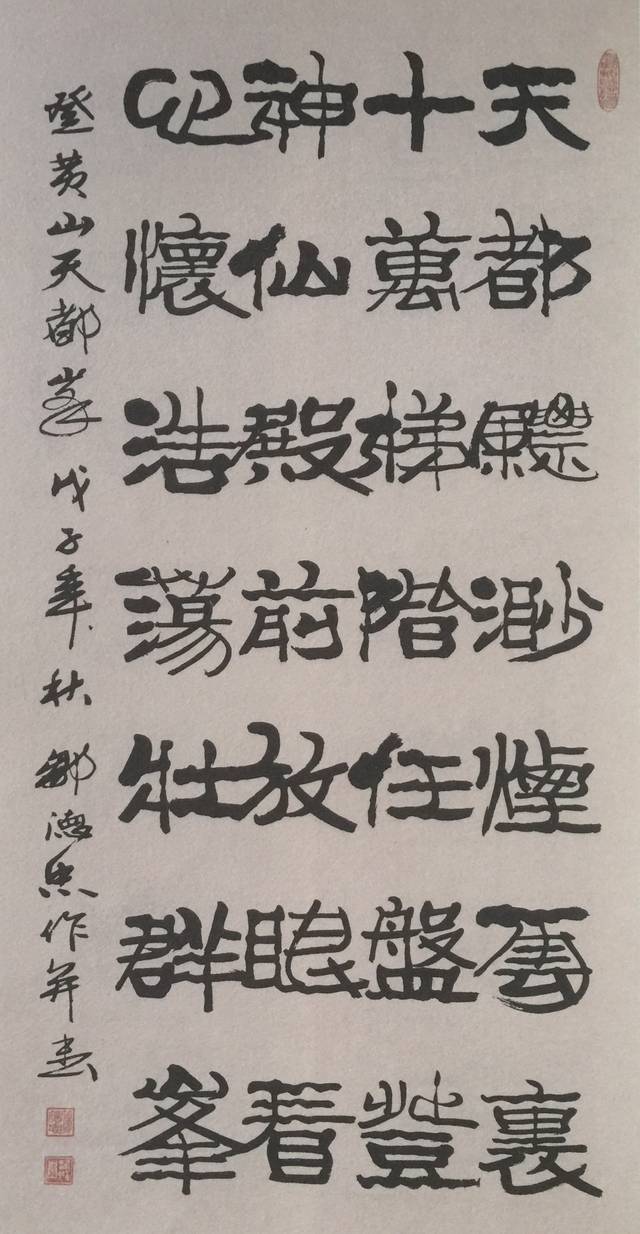 天都飄渺煙雲裏
十萬梯階任盤登
神仙殿前放眼看
心懷浩蕩壯群峯
登黄山天都峯 戊子年秋 鄒德忠作并書